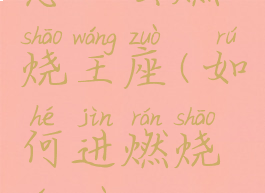 shāo wáng zuò rú
烧王座(如
hé jìn rán shāo
何进燃烧